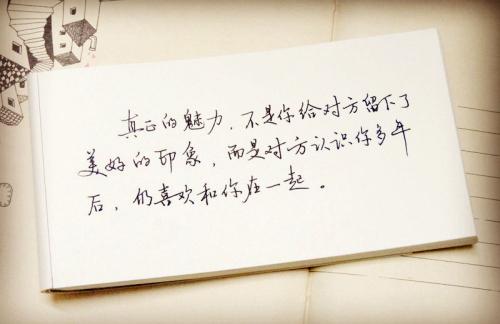 真正的魅力，不是你给对方留下了
美好的印象，而是对方认识你多年
后，仍喜欢和你在一起。